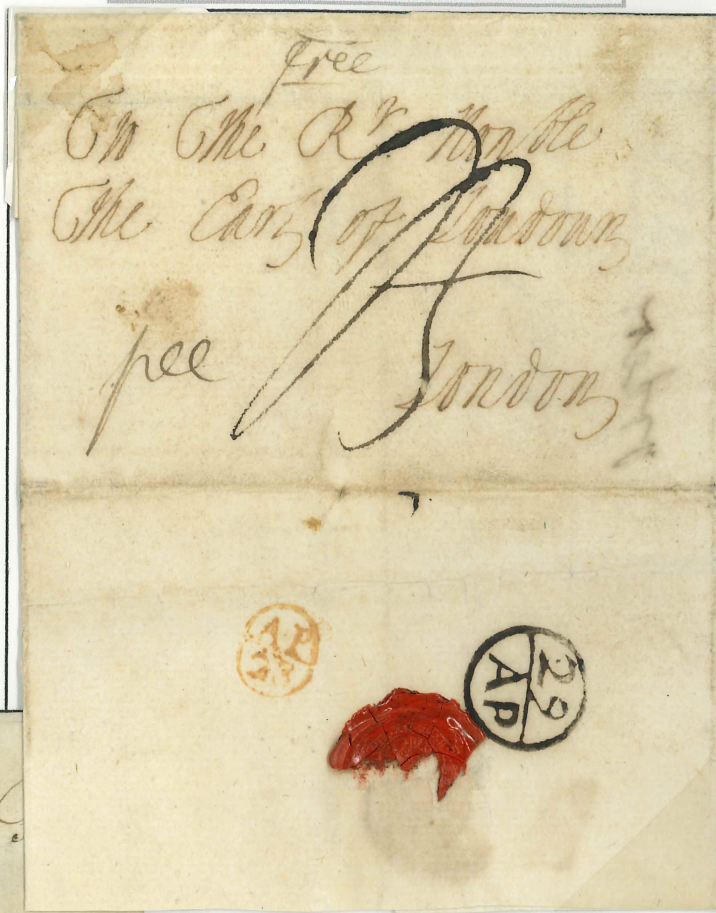 free
To The Rt Honble
The Earl of Loudoun
free
London
AP
29
AP